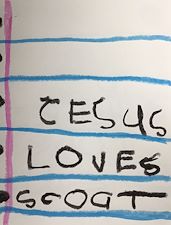 JESUS
LOVES
SCOAT